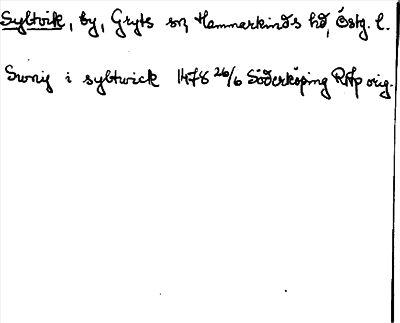 Syltvik, by, Gryts sn, Hammarkinds hd, Östg. l.
Swnig i syltwick 1478 26/6 Söderköping RAp orig.